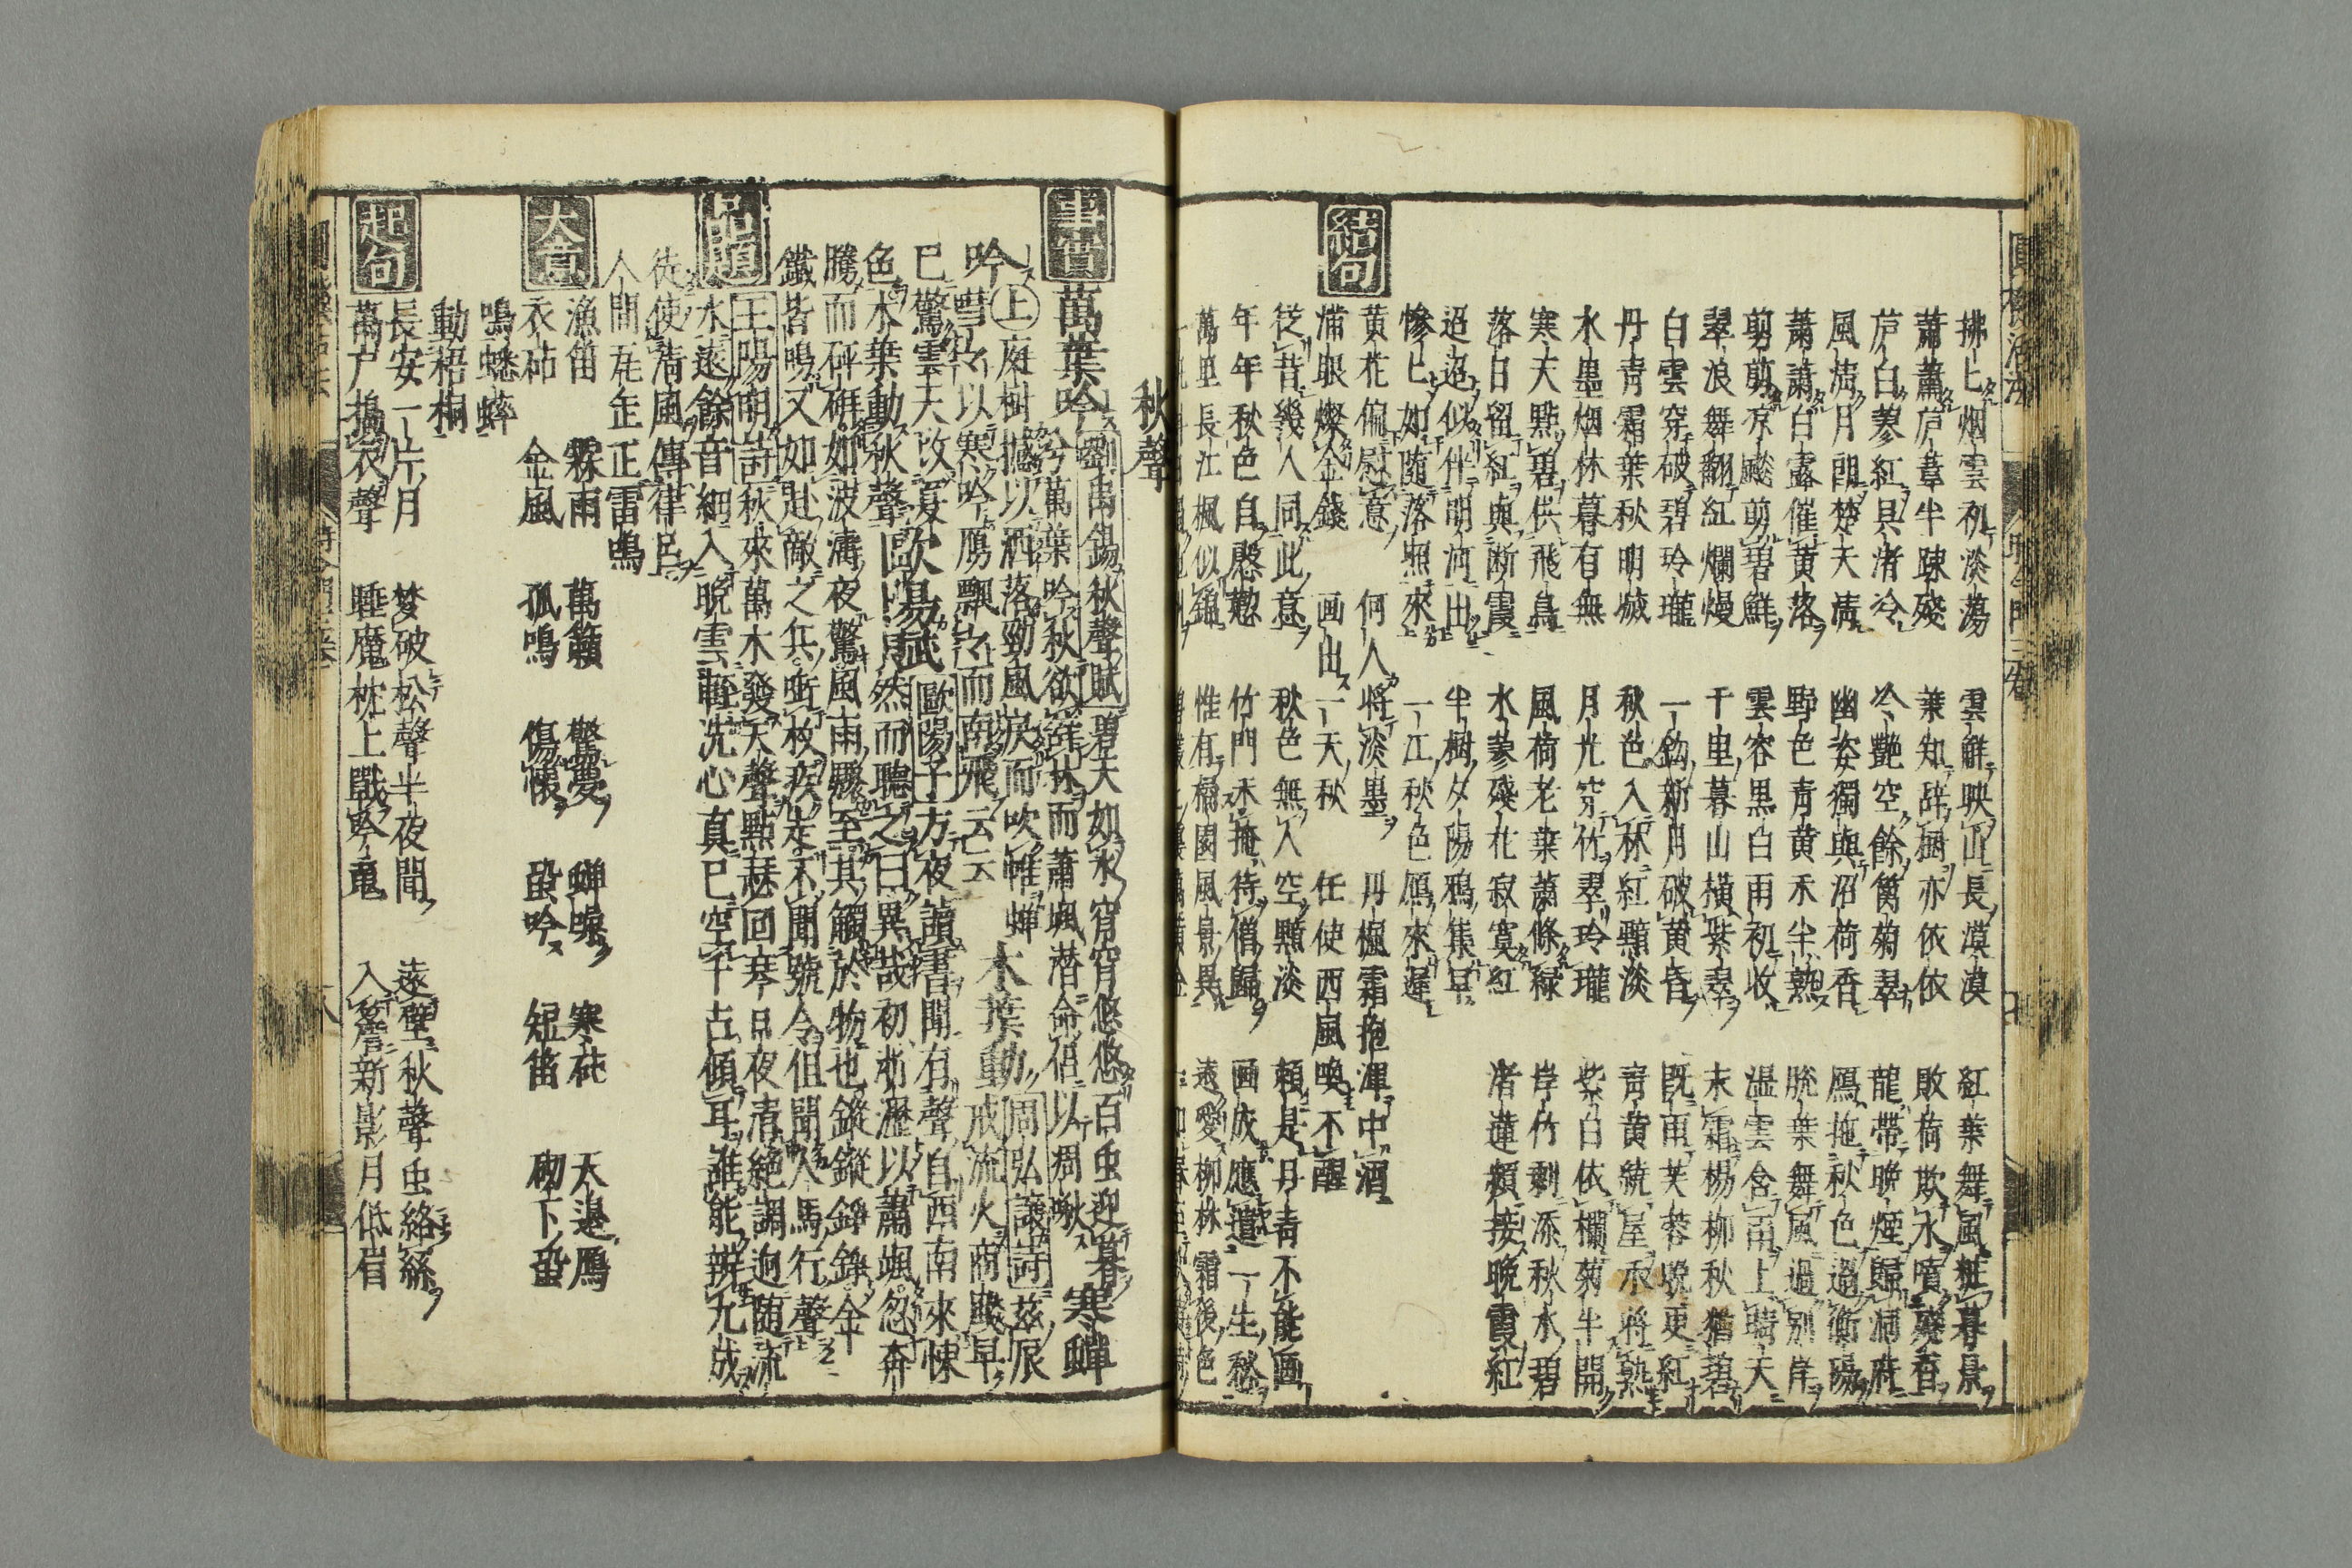 拂〻烟雲初淡蕩　雲鮮映山長漠漠　紅葉舞風粧暮景
蕭蕭芦葦半踈殘　葉知辞樹亦依依　敗荷欺水噴殘香
芦白蓼紅貝渚冷　冷艶空餘篱菊翠　龍帶晩煙歸洞府
風清月朗楚天清　幽姿獨與沼荷香　鴈拖秋色過衡陽
蕭蕭白露催黄落　野色青黄禾半熟　脱葉舞風過別岸
剪剪凉颸剪碧鮮　雲容黒白雨初收　温雲含雨上晴天
翠浪舞翻紅爛熳　千里暮山横紫翠　末霜楊柳秋猶碧
白雲穿破碧玲瓏　一鈎新月破黄昏　既雨芙蓉晩更紅
丹青霜葉秋明滅　秋色入林紅黯淡　青黄繞屋禾將熟
水墨烟林暮有無　月光穿竹翠玲瓏　紫白依欄菊半開
寒天點碧供飛鳥　風荷老葉蕭條緑　岸竹剰添秋水碧
落日留紅與断霞　水蓼殘花寂寞紅　渚蓮頼接晩霞紅
迢迢似伴明河出　半樹夕陽鴉集早
惨〻如随落照來　一江秋色鴈來遲
黄花偏慰意　何人将淡墨　丹楓霜抱渾中酒
結句
滿眼燦金錢　画出一天秋　任使西風喚不醒
従昔幾人同此意　秋色無人空黯淡　頼是丹青不能画
年年秋色自愍愁　竹門未掩待僧歸　画成應遣一生愁
萬里長江楓似錦　惟有橘園風景異　遠愛柳林霜後色
秋聲
事實
萬葉吟　劉禹錫秋聲賦　碧天如水窅窅悠悠百虫迎暮
兮萬葉吟秋欲辞林而蕭颯潜命侶以凋啾　寒蟬
吟　上　庭樹撼以洒落勁風戻而吹帷蟬　木葉動　周弘讓詩　茲辰
嘒々以寒吟鴈飄々而南飛云云　戒流火商飈早
已驚雲天改夏　歐陽賦　歐陽子方夜讀書聞有聲自西南來悚
色木葉動秋聲　然而聽之曰異哉初淅瀝以蕭颯忽奔
騰而砰湃如波濤夜驚風雨驟至其觸於物也鏦鏦錚錚金
鐵皆鳴又如赴敵之兵銜枚疾走不聞號令但聞人馬行聲
品題
王陽明詩　秋來萬木發天聲點瑟回琴日夜清絶調迥随流
水遠餘音細入晩雲輕洗心真已空千古傾耳誰能辨九成
徒使清風傳律呂
人間瓦缶正雷鳴
大意
漁笛　霖雨　萬籟　驚夢　蟬噪　寒砧　天邉鴈
衣砧　金風　孤鳴　傷懐　蛩吟　短笛　砌下蛩
鳴蟋蟀
動梧桐
起句
長安一片月　梦破松聲半夜間　遠壁秋聲虫絡絲
萬户擣衣聲　睡魔枕上戰吟竜　入簷新影月低眉